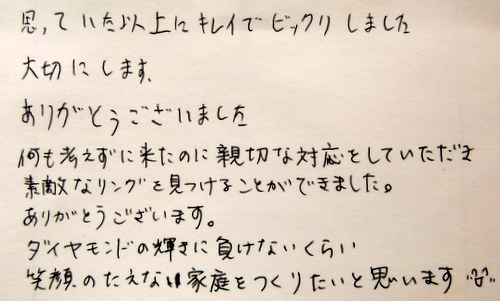 思っていた以上にキレイでビックリしました
大切にします。
ありがとうございました
何も考えずに来たのに親切な対応をしていただき
素敵なリングを見つけることができました。
ありがとうございます。
ダイヤモンドの輝きに負けないくらい
笑顔のたえない家庭をつくりたいと思います